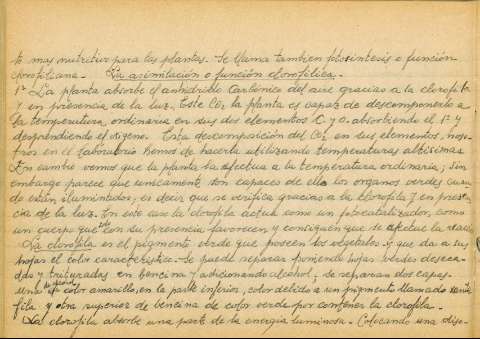 to mas nutritivo para las plantas. Se llama tambien fotosintesis o función
clorofiliana. - La asimilación o función clorofilica. -
1º La planta absorbe el anhidrido Carbónico del aire gracias a la clorofila
y en presencia de la luz. Este CO2 la planta es capaz de descomponerlo a
la temperatura, ordinaria en sus dos elementos C. y O. absorbiendo el 1º y
desprendiendo el oxigeno. Esta descomposición del CO2 en sus elementos, noso-
tros en el laboratorio hemos de hacerla utilizando temperaturas altisimas.
En cambio vemos que la planta la efectua a la temperatura ordinaria; Sin
embargo parece que unicamente son capaces de ello los organos verdes cuan
do estan iluminados; es decir que se verifica gracias a la clorofila y en presen
cia de la luz. En este caso la clorofila actua como un fotocatalizador, como
un cuerpo que solo con su presencia favorecen y consiguen que se efectue la
La clorofila es el pigmento verde que poseen los vegetales y que da a sus
hojas el color caracteristico. - Se puede separar poniendo hojas verdes deseca-
das y trituradas en bencina y adicionando alcohol, se separan dos capas
una de alcohol color amarillo, en la parte inferior, color debido a un pigmento llamado xanto
fila y otra superior de bencina de color verde por contener la clorofila. -
La clorofila absorbe una parte de la energia luminosa. - Colocando una diso-